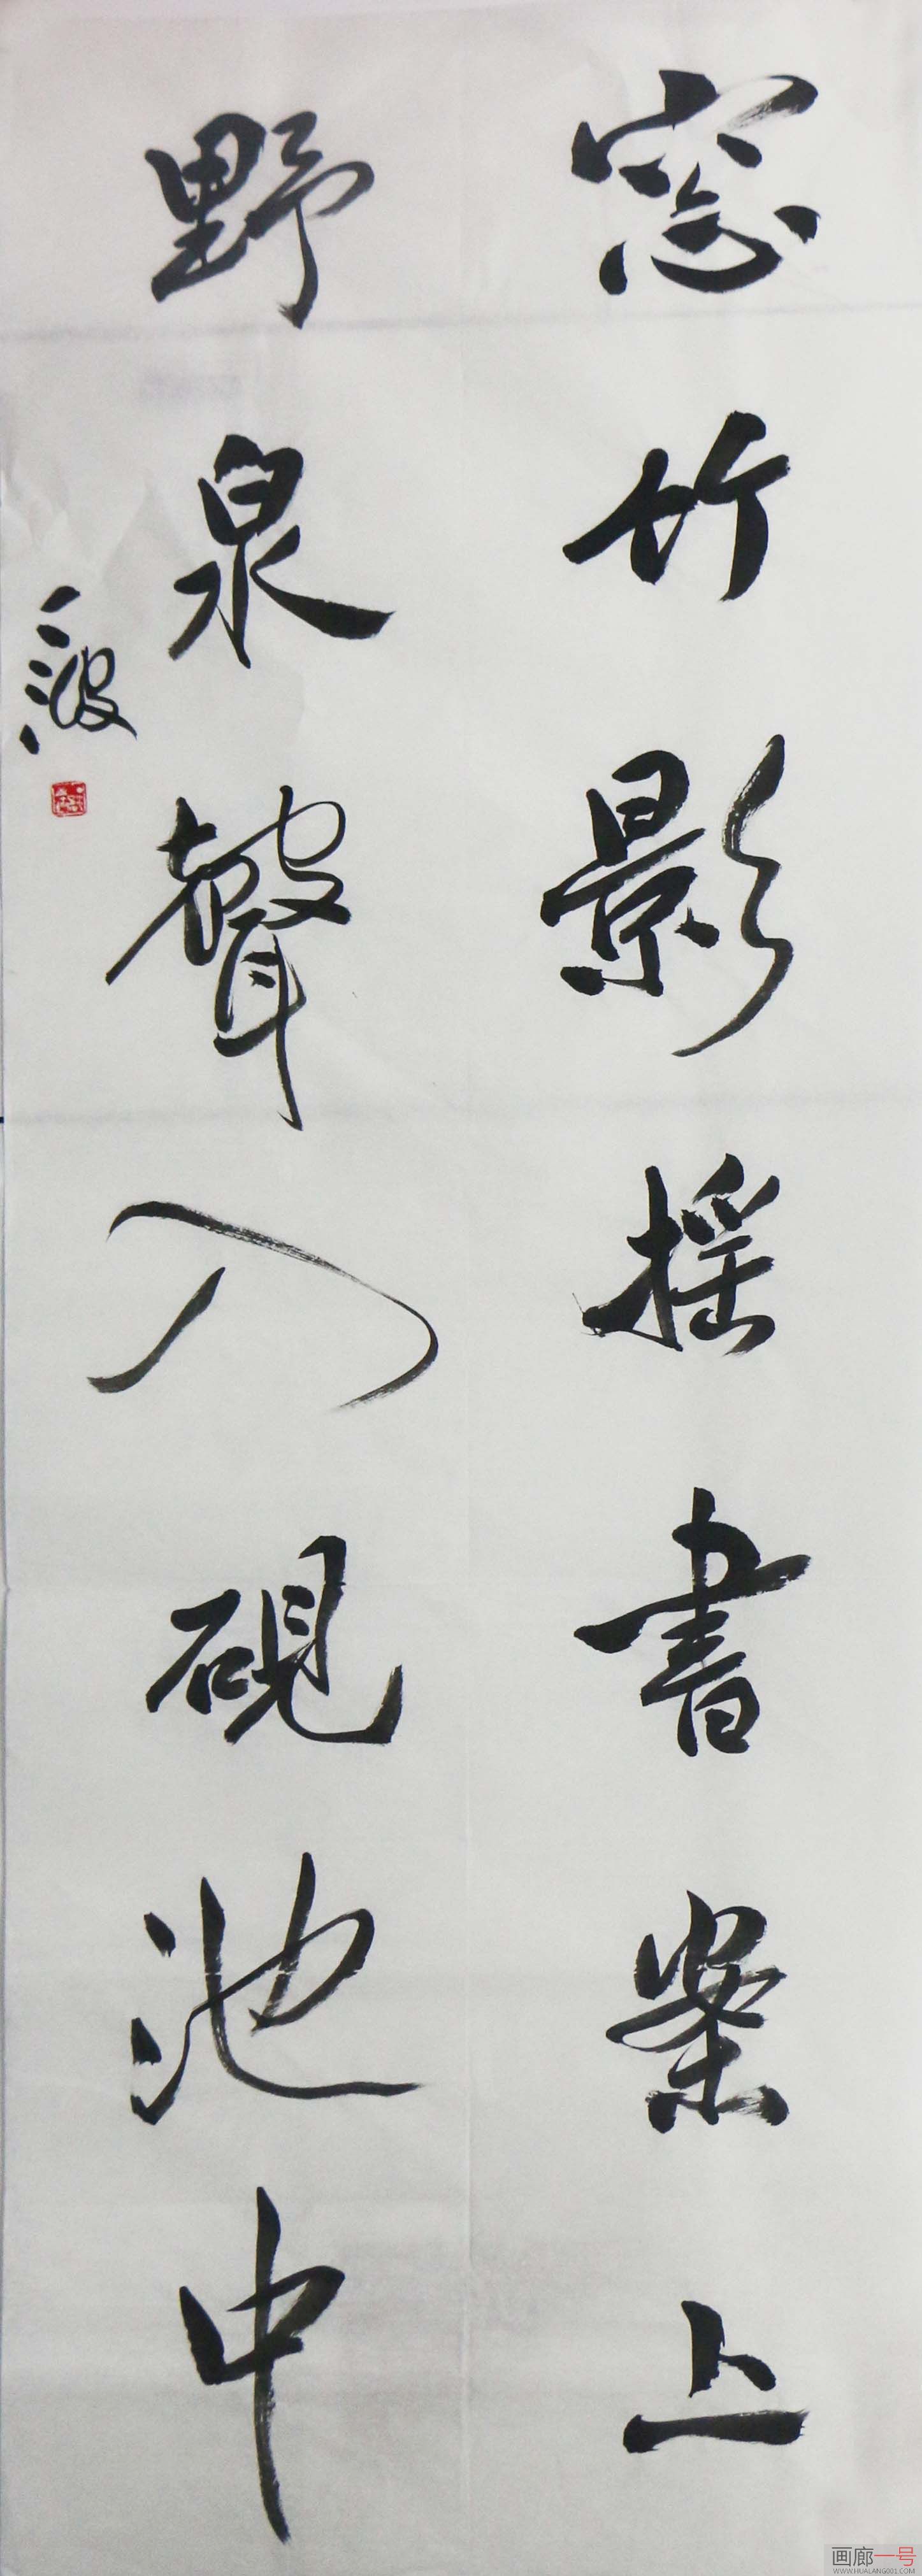 窓竹影摇書案上
野泉聲入硯池中
一波
画廊一号
WWW.HUALANG001.COM